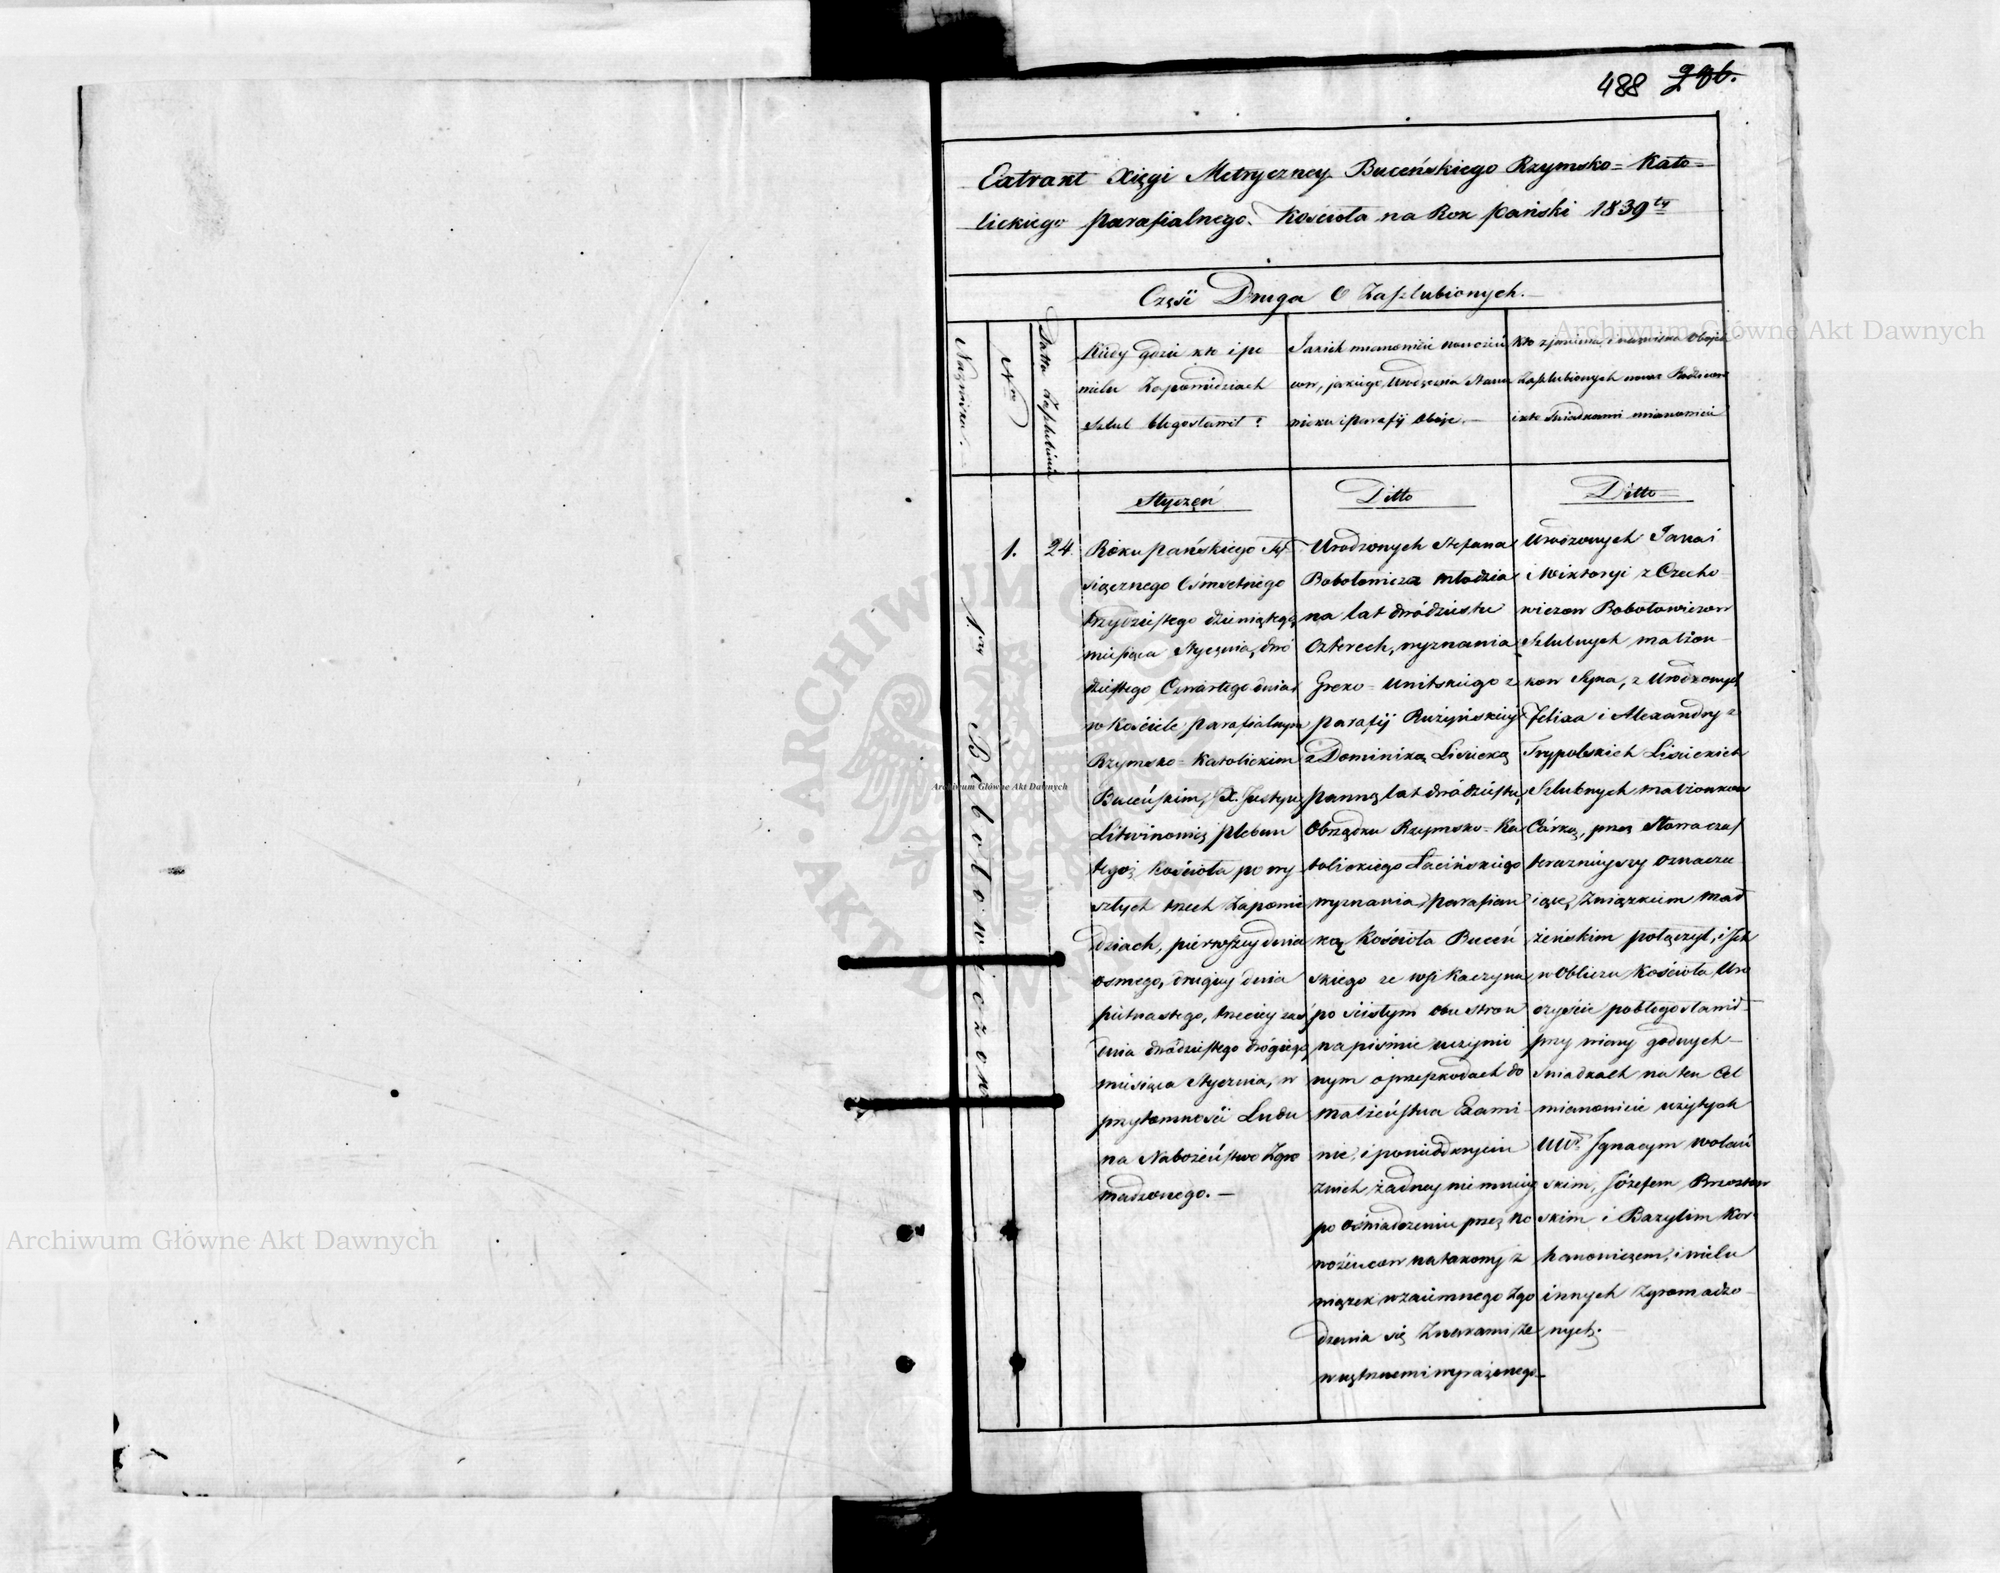 488 296.
Extrakt Xięgi Metryczney Buceńskiego Rzymsko=Kato=
lickiego Parafialnego Kościoła na Rok pański 1839ty
Część Druga O Zaszlubionych.
Nazwiska.
Nro
Datta Zaszlubienia
Kiedy gdzie kto i po
wielu Zapowiedziach
Szlub błogosławił?
Jakich mianowicie nowożeń
cow, jakiego Urodzenia Stanu
wieku i Parafij Oboje.—
Kto z jmienia i nazwiska Obojch
Zaszlubionych Rodzicow
i kto Swiadkami mianowicie
Styczeń
Ditto
Ditto
1szy Bobołowiczow
1.
24.
Roku pańskiego Ty
siącznego Osmsetnego
trzydzistego dziewiątego
miesiąca Stycznia, dwó
dziestego Czwartego dnia
w Kościele parafialnym
Rzymsko=Katolickim
Buceńskim, X. Justyn
Litwinowicz Pleban
tegoż Kościoła po wy
szłych trzech Zapowie
dziach, pierwszey dnia
osmego, drugiey dnia
pietnastego, trzeciey zaś
dnia dwódziestego drógiego
miesiąca Stycznia, w
przytomności Ludu
na Nabożeństwo Zgro
madzonego.—
Urodzonych Stefana
Bobołowicza młodzia
na lat dwódziestu
Czterech, wyznania
Greko=Unitskiego z
parafij Rużyńskiey
z Dominiką Lisiecką
panną lat dwódziestu,
Obrządku Rzymsko=Ka
tolickiego Łacińskiego
wyznania, parafian
ką Kościoła Buceń
skiego ze wsi Kaczyna
po scisłym obu stron
na pismie uczynio
nym o przeszkodach do
Małżeństwa Exami
nie, i po nieodkryciu
zwich żadney niemniey
po oświadczeniu przez no
wożeńcow na takowy z
wiązek wzaiemnego Zgo
dzenia się Znakami Ze
wnętrznemi wyrażonego—
Urodzonych Jana i
i Wiktoryi z Czecho
wiczow Bobołowiczow
Szlubnych małżon
kow Syna, z Urodzonych
Felixa i Alexandry z
Trypolskich Lisieckich
Szlubnych małżonkow
Córką, przez Słowa czas
terazniejszy oznacza
iące, Związkiem Mał
żeńskim połączył, i Ich
w Obliczu Kościoła Uro
czyście pobłogosławił—
przy wiary godnych—
Swiadkach na ten Cel
mianowicie użytych
UWch Ignacym Wolań
skim, Józefem Brzozow
skim i Bazylim Kor
hanowiczem, i wielu
innych Zgromadzo—
nych.—
Archiwum Główne Akt Dawnych
Archiwum Główne Akt Dawnych
Archiwum Główne Akt Dawnych